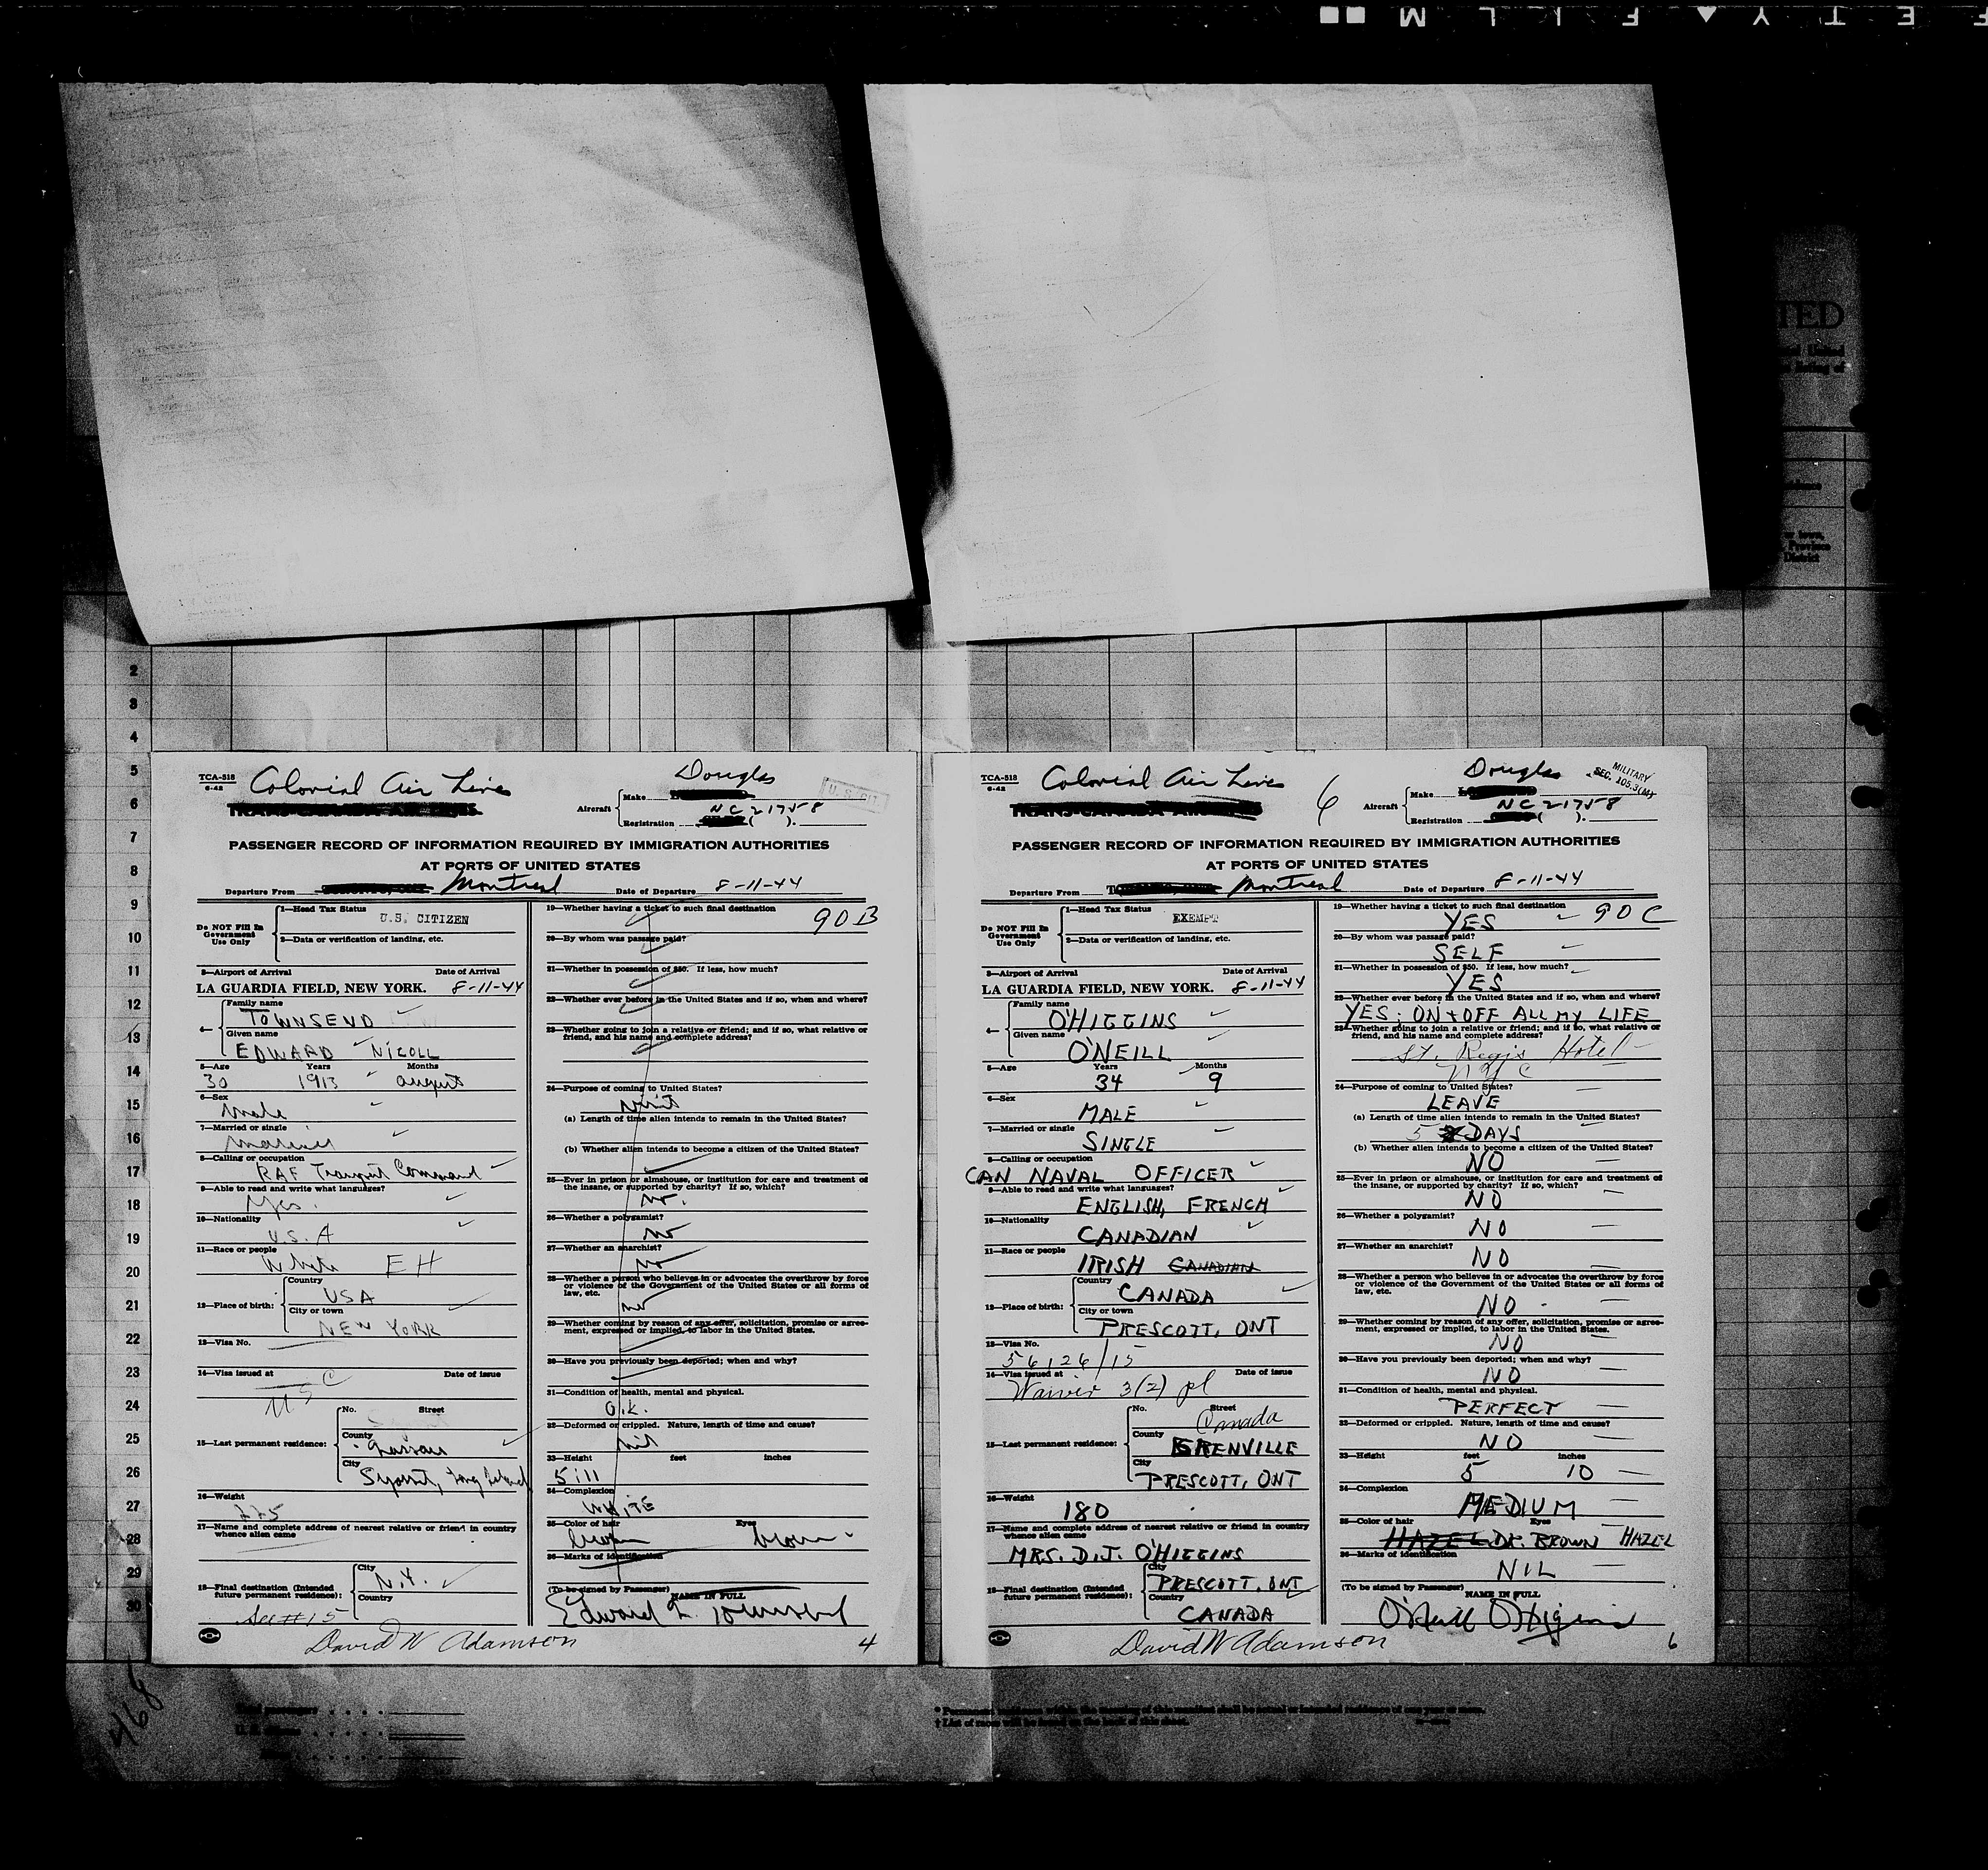 SAFETY FILM
TED
2
3
4
5
6
7
8
9
10
11
12
13
14
15
16
17
18
19
20
21
22
23
24
25
26
27
28
29
30
TCA-518
6-42
Colonial Air Lines
TRANS-CANADA AIR LINES
Aircraft
Make
Douglas
Registration
NC 21758
( ).
U.S. CIT.
PASSENGER RECORD OF INFORMATION REQUIRED BY IMMIGRATION AUTHORITIES
AT PORTS OF UNITED STATES
Departure From Montreal Date of Departure 8-11-44
Do NOT Fill In
Government
Use Only
1—Head Tax Status
U.S. CITIZEN
2—Data or verification of landing, etc.
3—Airport of Arrival Date of Arrival
LA GUARDIA FIELD, NEW YORK. 8-11-44
4—
Family name
TOWNSEND
Given name
EDWARD NICOLL
5—Age Years Months
30 1913 august
6—Sex
Male
7—Married or single
Married
8—Calling or occupation
RAF Transport Command
9—Able to read and write what languages?
Yes.
10—Nationality
U.S.A
11—Race or people
White EH
12—Place of birth:
Country
USA
City or town
NEW YORK
13—Visa No.
14—Visa issued at Date of issue
USC
15—Last permanent residence:
No. Street
County
Nassau
City
Syosset, Long Island
16—Weight
225
17—Name and complete address of nearest relative or friend in country
whence alien came
18—Final destination (Intended
future permanent residence):
City
N.Y.
Country
See #15
19—Whether having a ticket to such final destination
90B
20—By whom was passage paid?
21—Whether in possession of $50. If less, how much?
22—Whether ever before in the United States and if so, when and where?
23—Whether going to join a relative or friend; and if so, what relative or
friend, and his name and complete address?
24—Purpose of coming to United States?
visit
(a) Length of time alien intends to remain in the United States?
(b) Whether alien intends to become a citizen of the United States?
25—Ever in prison or almshouse, or institution for care and treatment of
the insane, or supported by charity? If so, which?
no.
26—Whether a polygamist?
no
27—Whether an anarchist?
no
28—Whether a person who believes in or advocates the overthrow by force
or violence of the Government of the United States or all forms of
law, etc.
no
29—Whether coming by reason of any offer, solicitation, promise or agree-
ment, expressed or implied, to labor in the United States.
30—Have you previously been deported; when and why?
31—Condition of health, mental and physical.
O.K.
32—Deformed or crippled. Nature, length of time and cause?
nil
33—Height feet inches
5 11
34—Complexion
WHITE
35—Color of hair Eyes
brown brown
36—Marks of identification
(To be signed by Passenger)
NAME IN FULL
Edward N. Townsend
David W Adamson
4
TCA-518
6-42
Colonial Air Lines
TRANS-CANADA AIR LINES
6
Aircraft
Make
Douglas
Registration
NC 21758
( ).
MILITARY
SEC. 105.3(M)
PASSENGER RECORD OF INFORMATION REQUIRED BY IMMIGRATION AUTHORITIES
AT PORTS OF UNITED STATES
Departure From Montreal Date of Departure 8-11-44
Do NOT Fill In
Government
Use Only
1—Head Tax Status
EXEMPT
2—Data or verification of landing, etc.
3—Airport of Arrival Date of Arrival
LA GUARDIA FIELD, NEW YORK. 8-11-44
4—
Family name
O'HIGGINS
Given name
O'NEILL
5—Age Years Months
34 9
6—Sex
MALE
7—Married or single
SINGLE
8—Calling or occupation
CAN NAVAL OFFICER
9—Able to read and write what languages?
ENGLISH, FRENCH
10—Nationality
CANADIAN
11—Race or people
IRISH CANADIAN
12—Place of birth:
Country
CANADA
City or town
PRESCOTT, ONT
13—Visa No.
56126/15
14—Visa issued at Date of issue
Waiver 3(2) pl
15—Last permanent residence:
No. Street
Canada
County
GRENVILLE
City
PRESCOTT, ONT
16—Weight
180
17—Name and complete address of nearest relative or friend in country
whence alien came
MRS. D.J. O'HIGGINS
18—Final destination (Intended
future permanent residence):
City
PRESCOTT, ONT
Country
CANADA
19—Whether having a ticket to such final destination
YES 90C
20—By whom was passage paid?
SELF
21—Whether in possession of $50. If less, how much?
YES
22—Whether ever before in the United States and if so, when and where?
YES; ON & OFF ALL MY LIFE
23—Whether going to join a relative or friend; and if so, what relative or
friend, and his name and complete address?
St. Regis Hotel
NYC
24—Purpose of coming to United States?
LEAVE
(a) Length of time alien intends to remain in the United States?
5 DAYS
(b) Whether alien intends to become a citizen of the United States?
NO
25—Ever in prison or almshouse, or institution for care and treatment of
the insane, or supported by charity? If so, which?
NO
26—Whether a polygamist?
NO
27—Whether an anarchist?
NO
28—Whether a person who believes in or advocates the overthrow by force
or violence of the Government of the United States or all forms of
law, etc.
NO
29—Whether coming by reason of any offer, solicitation, promise or agree-
ment, expressed or implied, to labor in the United States.
NO
30—Have you previously been deported; when and why?
NO
31—Condition of health, mental and physical.
PERFECT
32—Deformed or crippled. Nature, length of time and cause?
NO
33—Height feet inches
5 10
34—Complexion
MEDIUM
35—Color of hair Eyes
HAZEL DK. BROWN HAZEL
36—Marks of identification
NIL
(To be signed by Passenger)
NAME IN FULL
O'Neill O'Higgins
David W Adamson
6
468
† List of races will be found on the back of this sheet.